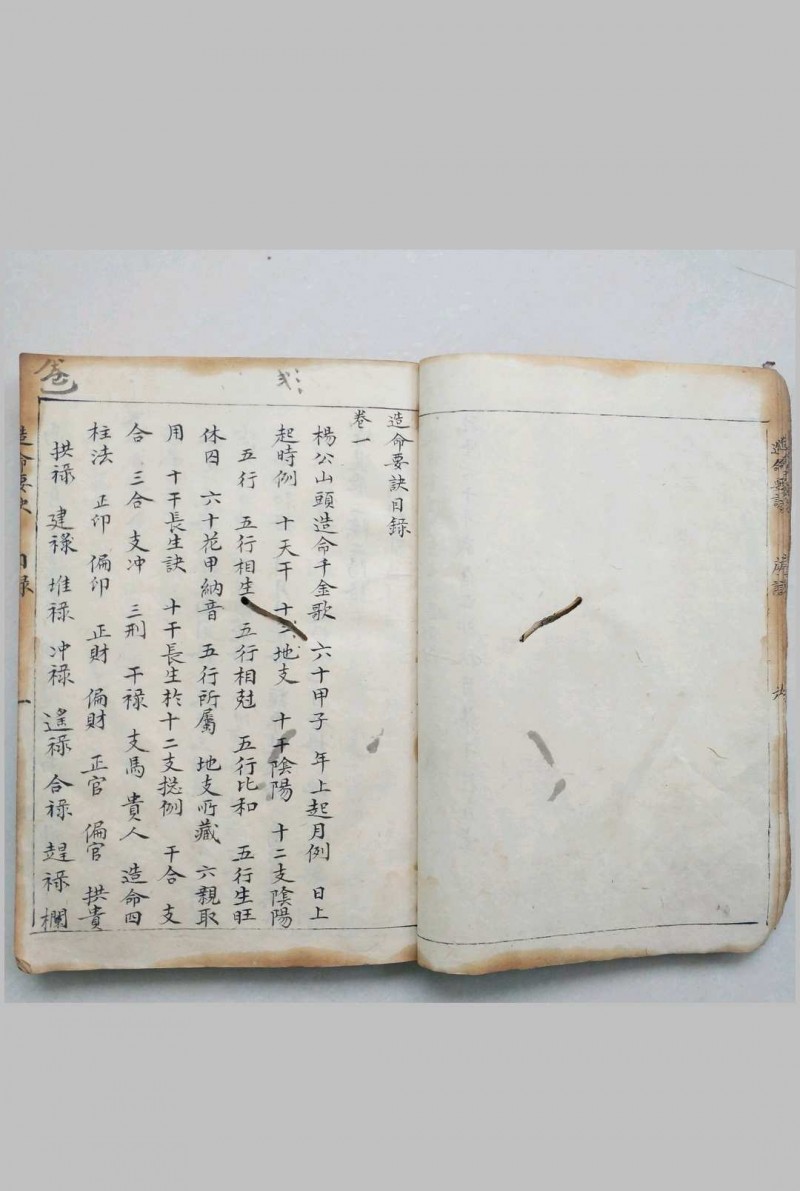 造命要訣目録
卷一
楊公山頭造命千金歌 六十甲子 年上起月例 日上
起時例 十天干 十二地支 十干陰陽 十二支陰陽
五行 五行相生 五行相尅 五行比和 五行生旺
休囚 六十花甲納音 五行所屬 地支所藏 六親取
用 十干長生訣 十干長生於十二支捴例 干合 支
合 三合 支冲 三刑 干禄 支馬 貴人 造命四
柱法 正印 偏印 正財 偏財 正官 偏官 拱貴
拱禄 建禄 堆禄 冲禄 遙禄 合禄 趕禄 欄
造命要訣 目録 一